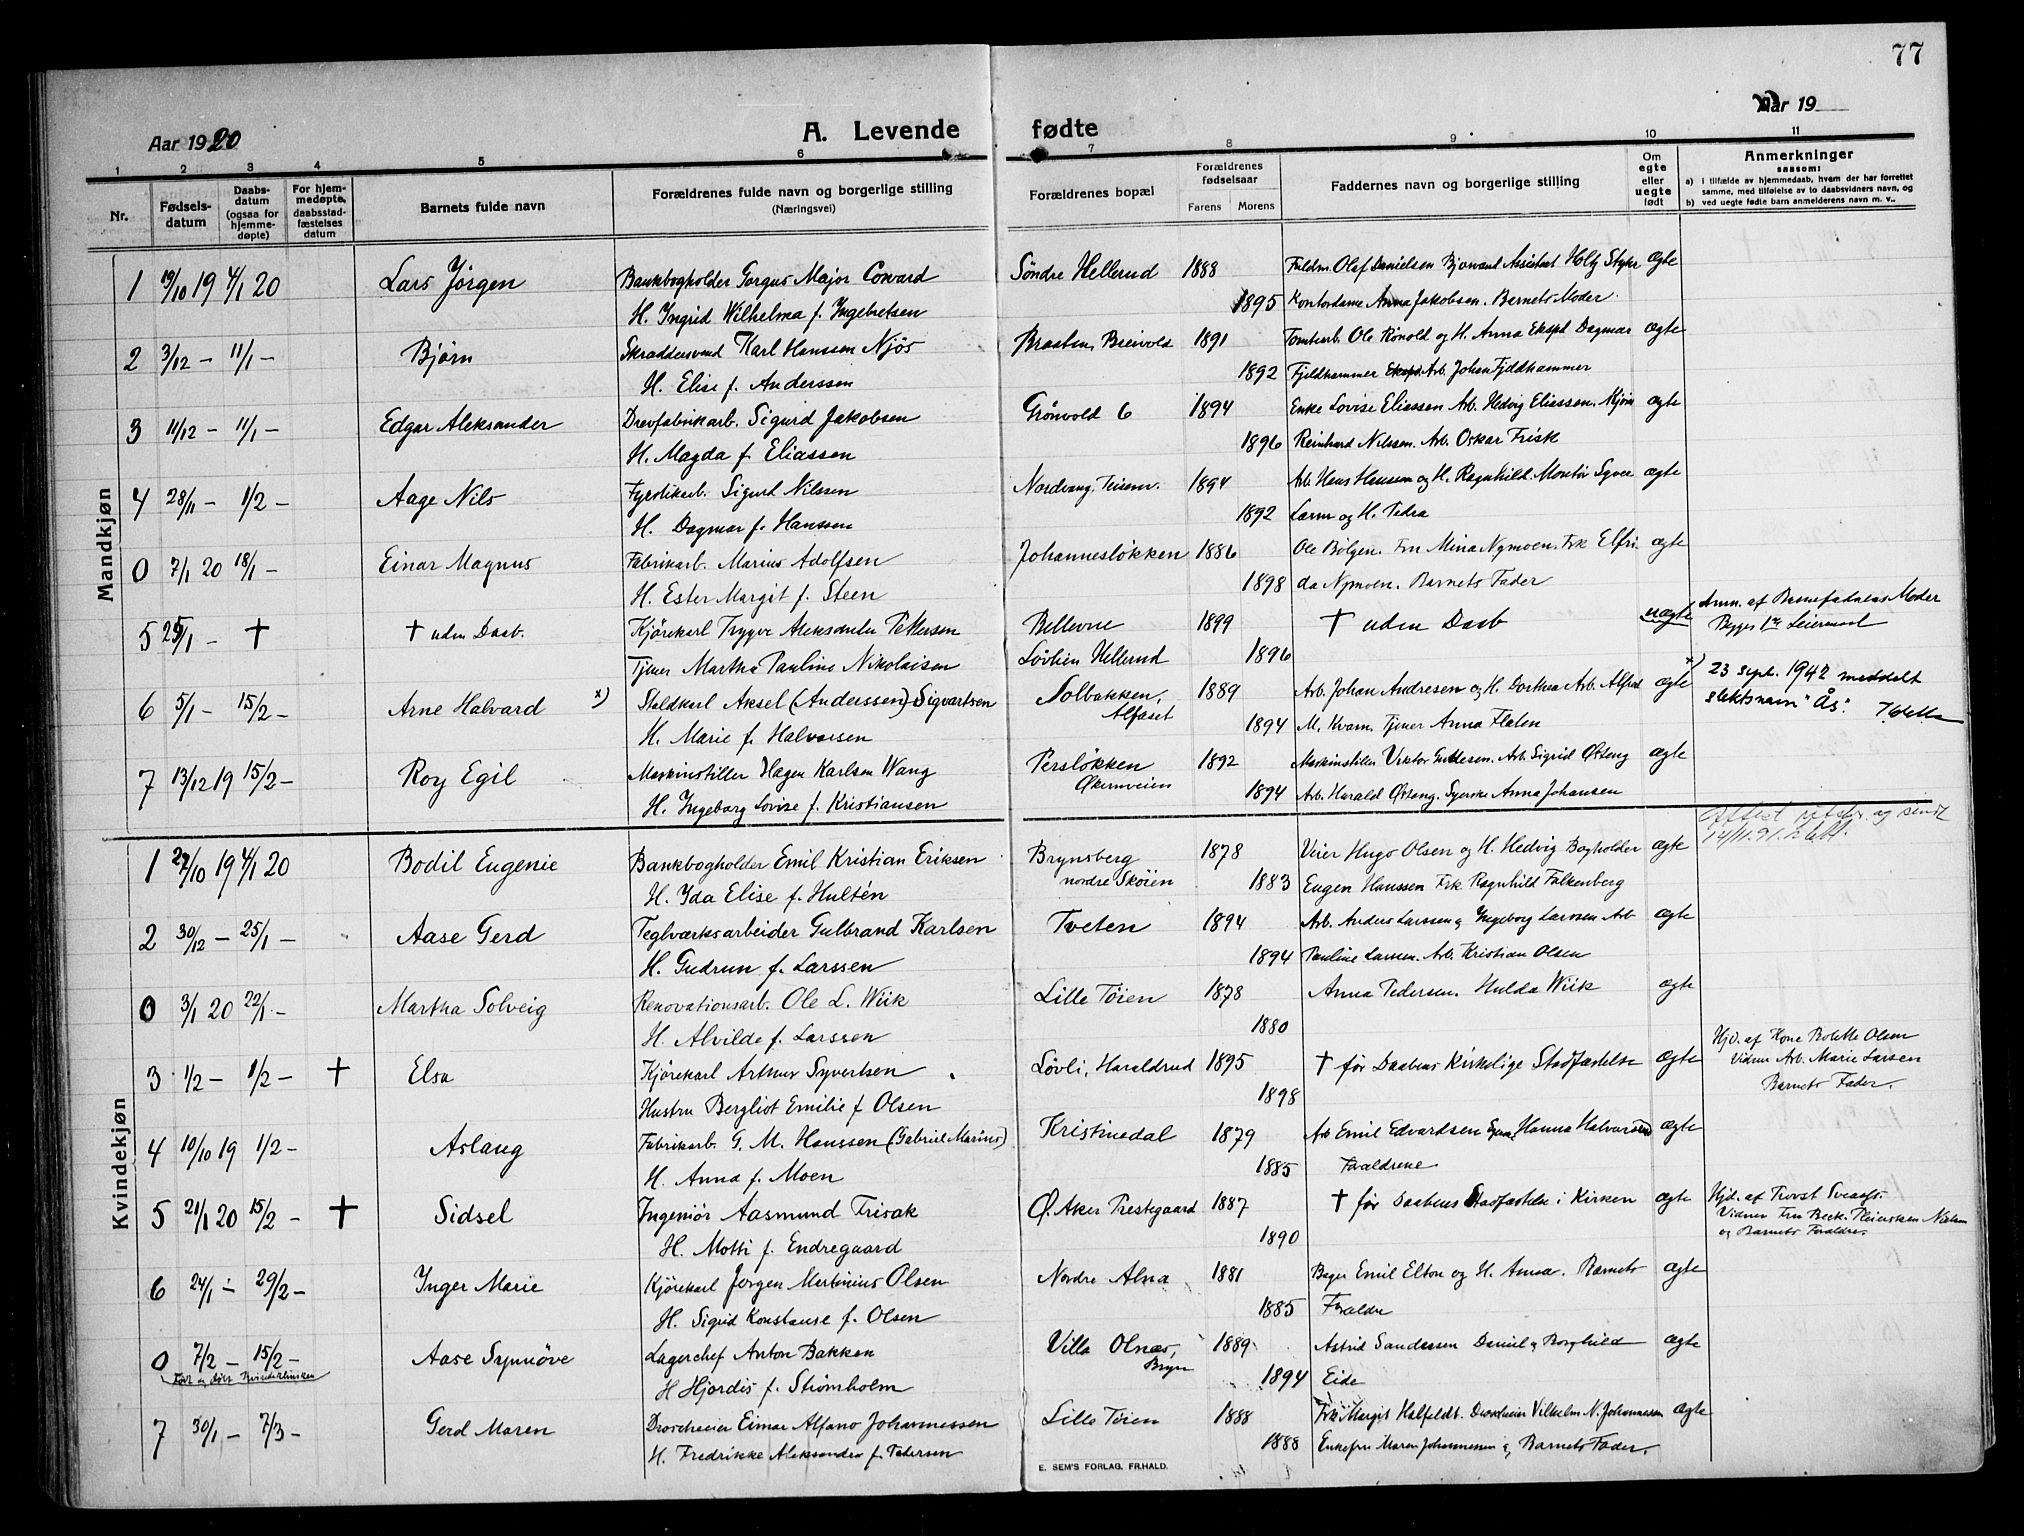 77
Aar 1920
A. Levende fødte
Aar 19
1 2 3 4 5 6 7 8 9 10 11
Nr.
Fødsels-datum
Daabs-datum (ogsaa for hjemme-døpte)
For hjem-medøpte, daabsstad-fæstelses datum
Barnets fulde navn
Forældrenes fulde navn og borgerlige stilling
(Næringsvei)
Forældrenes bopæl
Forældrenes fødselsaar
Farens Morens
Faddernes navn og borgerlige stilling
Om egte eller uegte født
Anmerkninger
saasom:
a) i tilfælde av hjemmedaab, hvem der har forrettet samme, med tilføielse av to daabsvidners navn, og
b) ved uegte fødte barn anmelderens navn m. v..
Mandkjøn
1 19/10 19 4/1 20 Lars Jørgen Bankbogholder Gorgus Major Coward Søndre Hellerud 1888 Fuldm. Olaf Danielsen Bjonand Assistent Holtz Styhr ægte
H. Ingrid Wilhelma f. Ingebretsen 1895 Kontordame Anna Jakobsen. Barnets Moder.
2 3/12 - 11/1 - Bjørn Skræddersvend Karl Hanssen Njøs Braaten, Breivold 1891 Tomtearb. Ole Rønold og H. Anna Eksped Dagmar ægte
H. Elise f. Anderssen 1892 Fjeldhammer Arb. Johan Fjeldhammer
3 11/12 - 11/1 - Edgar Aleksander Drevfabrikarb. Sigurd Jakobsen Grønvold 6 1894 Enke Lovise Eliassen Arb. Hedvig Eliassen. ægte
H. Magda f. Eliassen 1896 Reinhard Nilssen. Arb. Oskar Frisk
4 28/11 - 1/2 - Aage Nils Fyrstikarb. Sigurd Nilssen Nordvang, Teisen. 1894 Arb. Hans Hansen og H. Ragnhild. Montør Syver ægte
H. Dagmar f. Hanssen 1892 Larm og H. Petra
0 7/1 20 18/1 - Einar Magnus Fabrikarb. Marius Adolfsen Johannesløkken 1886 Ole Bølgen. Fru Mina Nymoen. Frk Elfri ægte
H. Ester Margit f. Steen 1898 da Nymoen. Barnets Fader
5 25/1 - † † uden Daab. Kjørekarl Trygve Aleksander Pettersen Bellevue 1899 † uden Daab uægte Anm. af Barnefaderens Moder
Tjener Martha Pauline Nikolaisen Løvlien Hellerud 1896 Begges 1ste Leiermaal
6 5/1 - 15/2 - Arne Halvard x) Staldkarl Aksel (Anderssen) Sigvartsen Solbakken, Alfaset 1889 Arb. Johan Andresen og H. Dorthea Arb. Alfred ægte x) 23 sept. 1942 meddelt
H. Marie f. Halvorsen 1894 M. Kvarn. Tjener Anna Flaten slektsnavn "Ås".
7 13/12 19 15/2 - Roy Egil Maskinstiller Hagen Karlsen Wang Persløkken Økernveien 1892 Maskinstiller Viktor Guldesen. Arb. Sigrid Østeng ægte
H. Ingeborg Lovise f. Kristiansen 1894 Arb. Harald Østeng. Syerske Anna Johansen
Attest utstr. og sendt
Kvindekjøn
1 27/10 19 4/1 20 Bodil Eugenie Bankbogholder Emil Kristian Eriksen Brynsberg nordre Skøien 1878 Veier Hugo Olsen og H. Hedvig Bogholder ægte
H. Ida Elise f. Hultén 1883 Eugen Hanssen Frk Ragnhild Falkenberg
2 30/12 - 25/1 - Aase Gerd Teglværksarbeider Gulbrand Karlsen Tveten 1894 Arb. Anders Larssen og Ingeborg Larssen Arb ægte
H. Gudrun f. Larssen 1894 Pauline Larsen. Arb. Kristian Olsen
0 3/1 20 22/1 - Martha Solveig Renovationsarb. Ole L. Wiik Lille Tøien 1878 Anna Pedersen. Hulda Wiik ægte
H. Alvilde f. Larssen 1880
3 1/2 - 1/2 - † Elsa Kjørekarl Arthur Syvertsen Løvli, Haraldrud 1895 † før Daabens Kirkelige Stadfæstelse ægte Hjd. af Kone Bolette Olsen
Hustru Bergliot Emilie f Olsen 1898 Vidner Arb. Marie Larsen Barnets Fader.
4 10/10 19 1/2 - Aslaug Fabrikarb. G. M. Hanssen (Gabriel Marius) Kristinedal 1879 Arb Emil Edvardsen Hanna Halvorsen ægte
H. Anna f. Moen 1885 Forældrene
5 21/1 20 15/2 - † Sidsel Ingeniør Aasmund Frisak Ø. Aker Prestegaard 1887 † før Daabens Stadfæstelse i Kirken ægte Hjd. af Provst
H. Motti f. Endregaard 1890 Vidner Fru Beck. Pleiersken Nielsen og Barnets Forældre.
6 24/1 - 29/2 - Inger Marie Kjørekarl Jørgen Martinius Olsen Nordre Alna 1881 Bager Emil Elton og H. Anna. Barnets ægte
H. Sigrid Konstanse f. Olsen 1885 Forældre
0 7/2 - 15/2 - Aase Synnöve Lagerchef Anton Bakken Villa Olnæs, Bryn 1889 Astrid Sandersen Daniel og Borghild ægte
Født og døbt Kvindeklinikken H Hjordis f. Strømholm 1894 Eide
7 30/1 - 7/3 - Gerd Maren Droscheeier Einar Alfano Johannessen Lille Tøien 1888 Frk. Margit Halfeldt. Droscheeier Vilhelm N. Johannessen ægte
H. Fredrikke Aleksandra f. Pedersen 1888 Enkefru Maren Johannessen og Barnets Fader.
E. SEM'S FORLAG, FR.HALD.